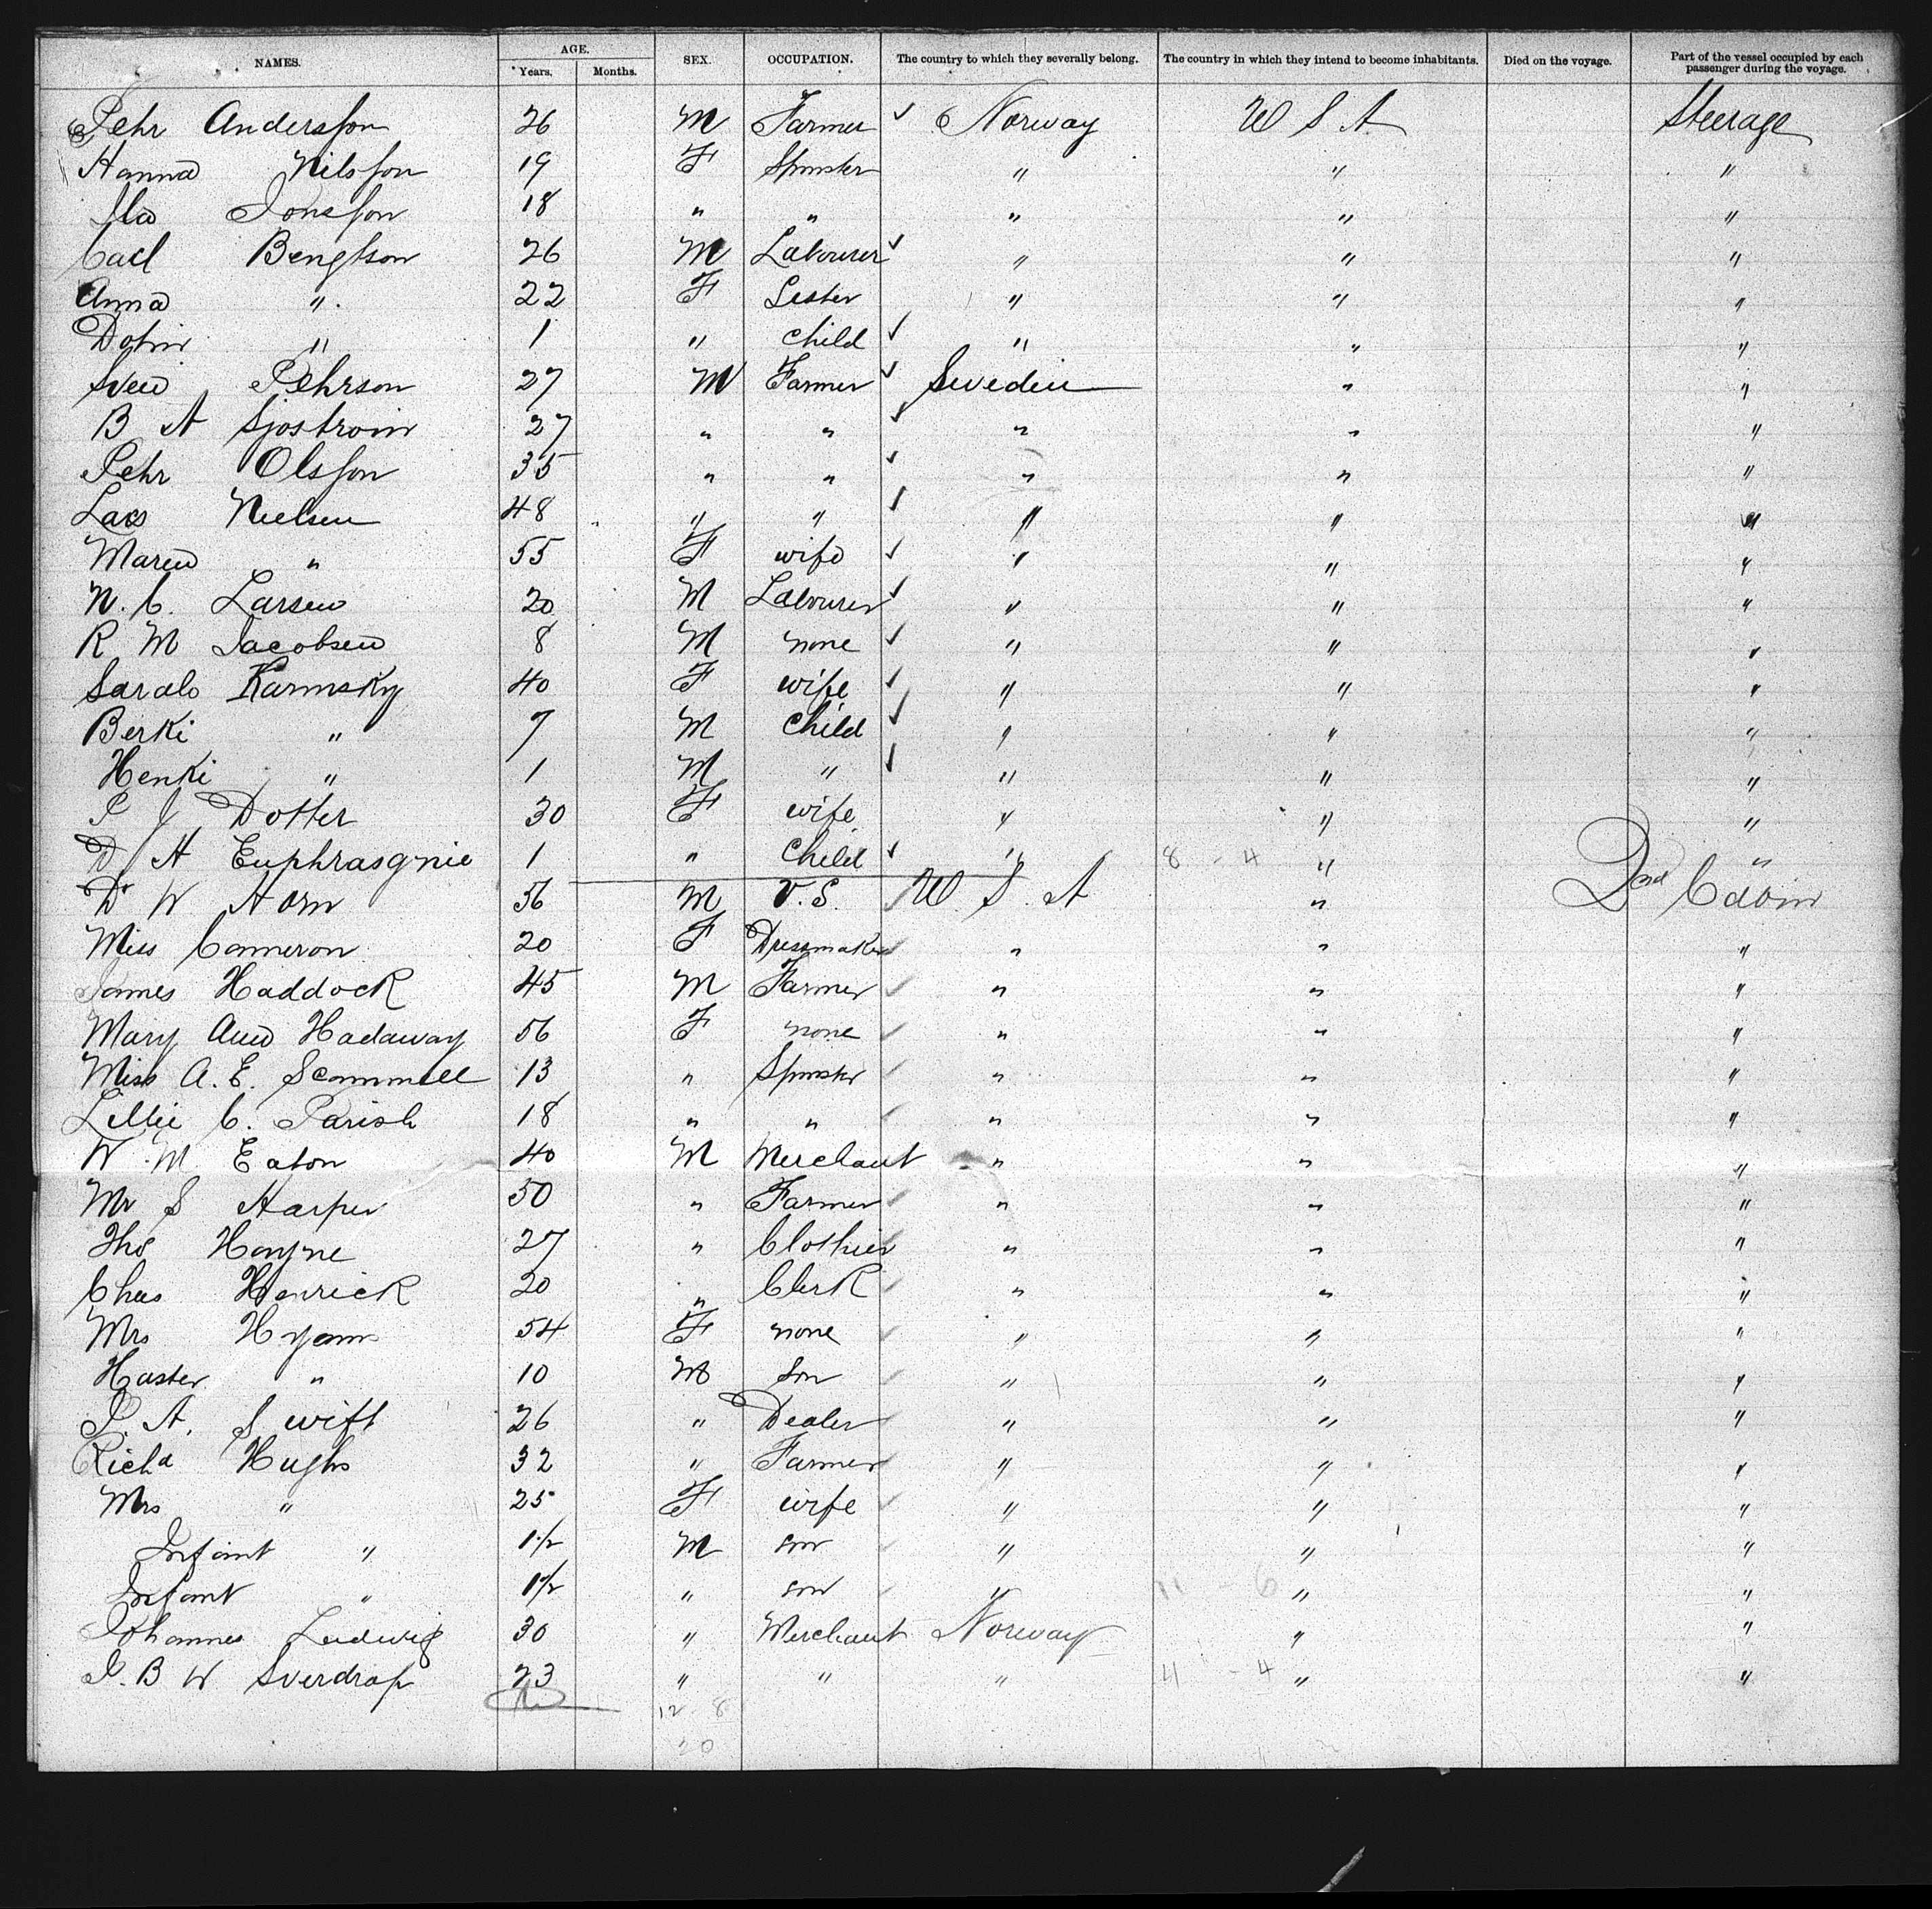 NAMES. AGE. Years. Months. SEX. OCCUPATION. The country to which they severally belong. The country in which they intend to become inhabitants. Died on the voyage. Part of the vessel occupied by each passenger during the voyage.
Pehr Andersson 26 M Farmer ✓ Norway U S A Steerage
Hanna Nilsson 19 F Spinster " " "
Ila Jonsson 18 " " " " "
Carl Bengtson 26 M Labourer ✓ " " "
Anna " 22 F Sister " " "
" 1 " child ✓ " " "
Sven Pehrson 27 M Farmer ✓ Sweden " "
B A Sjostrom 27 " " ✓ " " "
Pehr Olsson 35 " " ✓ " " "
Lars Nielsen 48 " " ✓ " " "
Maren " 55 F wife ✓ " " "
N. C. Larsen 20 M Labourer ✓ " " "
R M Jacobsen 8 M none ✓ " " "
Sarah Karmsky 40 F wife ✓ " " "
Berki " 7 M Child ✓ " " "
Henki " 1 M " ✓ " " "
P J Dotter 30 F wife " " "
D A Euphrasgnie 1 " Child ✓ " 8 - 4 " "
Dr W Horn 56 M V.S. ✓ U. S. A " 2nd Cabin
Miss Cameron 20 F Dressmaker ✓ " " "
James Haddock 45 M Farmer ✓ " " "
Mary Ann Hadaway 56 F none ✓ " " "
Miss A. E. Scammell 13 " Spinster ✓ " " "
Lillie C. Parish 18 " " ✓ " " "
W. M Eaton 40 M Merchant " " "
Mr S Harper 50 " Farmer ✓ " " "
Thos Hayne 27 " Clothier ✓ " " "
Chas Henrick 20 " Clerk ✓ " " "
Mrs Hyam 54 F none ✓ " " "
" 10 M son ✓ " " "
P. A. Swift 26 " Dealer ✓ " " "
Richd Hughs 32 " Farmer ✓ " " "
Mrs " 25 F wife ✓ " " "
Infant " 1½ M son ✓ " " "
Infant " 1½ " son ✓ " 11 - 6 " "
Johannes Ludwig 30 " Merchant Norway " "
J. B W Sverdrop 23 " " " 4 - 4 " "
12 8
20